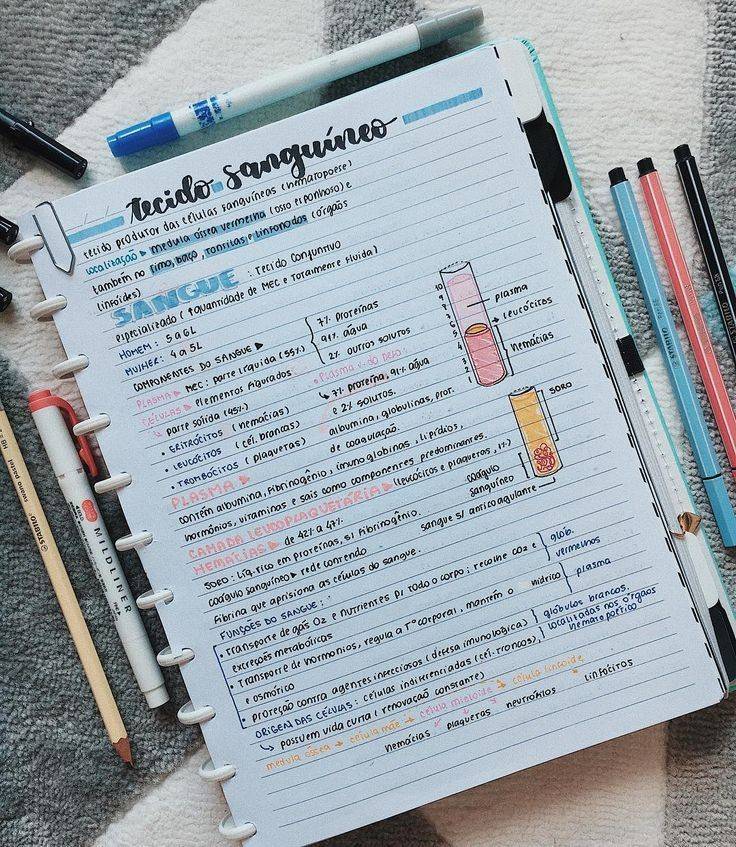 tecido sanguíneo
tecido produtor das células sanguíneas (hematopoese)
localização ▸ medula óssea vermelha (osso esponhoso) e
também no timo, baço, tonsilas e linfonodos (órgãos
linfoides)
SANGUE : tecido conjuntivo
especializado (↑quantidade de MEC e totalmente fluida)
HOMEM: 5 a 6L
MULHER: 4 a 5L
COMPONENTES DO SANGUE ▸
7% proteínas
91% água
2% outros solutos
PLASMA ▸ MEC: parte líquida (55%)
CÉLULAS ▸ elementos figurados
↳ parte sólida (45%)
• ERITRÓCITOS (hemácias)
• LEUCÓCITOS (cél. brancas)
• TROMBÓCITOS (plaquetas)
• plasma
↳ 7% proteína, 91% água
e 2% solutos.
albumina, globulinas, prot.
de coagulação.
10
9
8
7
6
5
4
3
2
1
plasma
leucócitos
hemácias
SORO
coágulo
sanguíneo
sangue s/ anticoagulante
PLASMA ▸
contém albumina, fibrinogênio, imunoglobinas, lipídios,
hormônios, vitaminas e sais como componentes predominantes.
CAMADA LEUCOPLAQUETÁRIA ▸ leucócitos e plaquetas, 1%)
HEMÁTIAS ▸ de 42% a 47%.
SORO: líq. rico em proteínas, s/ fibrinogênio.
coágulo sanguíneo ▸ rede contendo
fibrina que aprisiona as células do sangue.
FUNÇÕES DO SANGUE:
• transporte de gás O2 e nutrientes p/ todo o corpo; recolhe CO2 e
excreções metabólicas
glób.
vermelhos
• transporte de hormônios, regula a T° corporal, mantém o hídrico
e osmótico
plasma
• proteção contra agentes infecciosos (defesa imunológica)
glóbulos brancos,
localizadas nos órgãos
hematopoético
ORIGEM DAS CÉLULAS: células indiferenciadas (cél. troncos),
↳ possuem vida curta (renovação constante)
medula óssea → célula mãe → célula mieloide → célula linfoide
hemácias plaquetas neutrófilos linfócitos
MILDLINER
STABILO